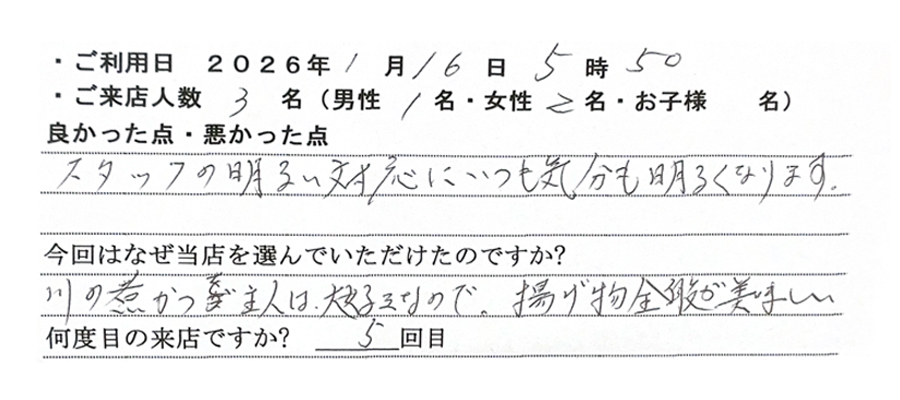 ・ご利用日 2026年 1 月 16 日 5 時 50
・ご来店人数 3 名（男性 1 名・女性 2 名・お子様 名）
良かった点・悪かった点
スタッフの明るい対応にいつも気分も明るくなります。
今回はなぜ当店を選んでいただけたのですか?
川の煮かつが主人は、大好きなので。揚げ物全般が美味しい
何度目の来店ですか? 5 回目